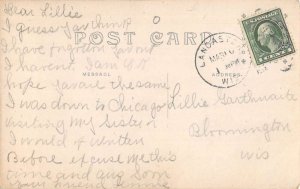 Dear Lillie
I guess you think
POST CARD
I have forgotten
I havent I am OK
MESSAGE
hope you are the same
I was down to Chicago
visiting my Sister
I would of written
Before excuse me this
time and ans Soon
your friend
LANCASTER
WIS
ADDRESS
Lillie Garthwaite
Bloomington
Wis